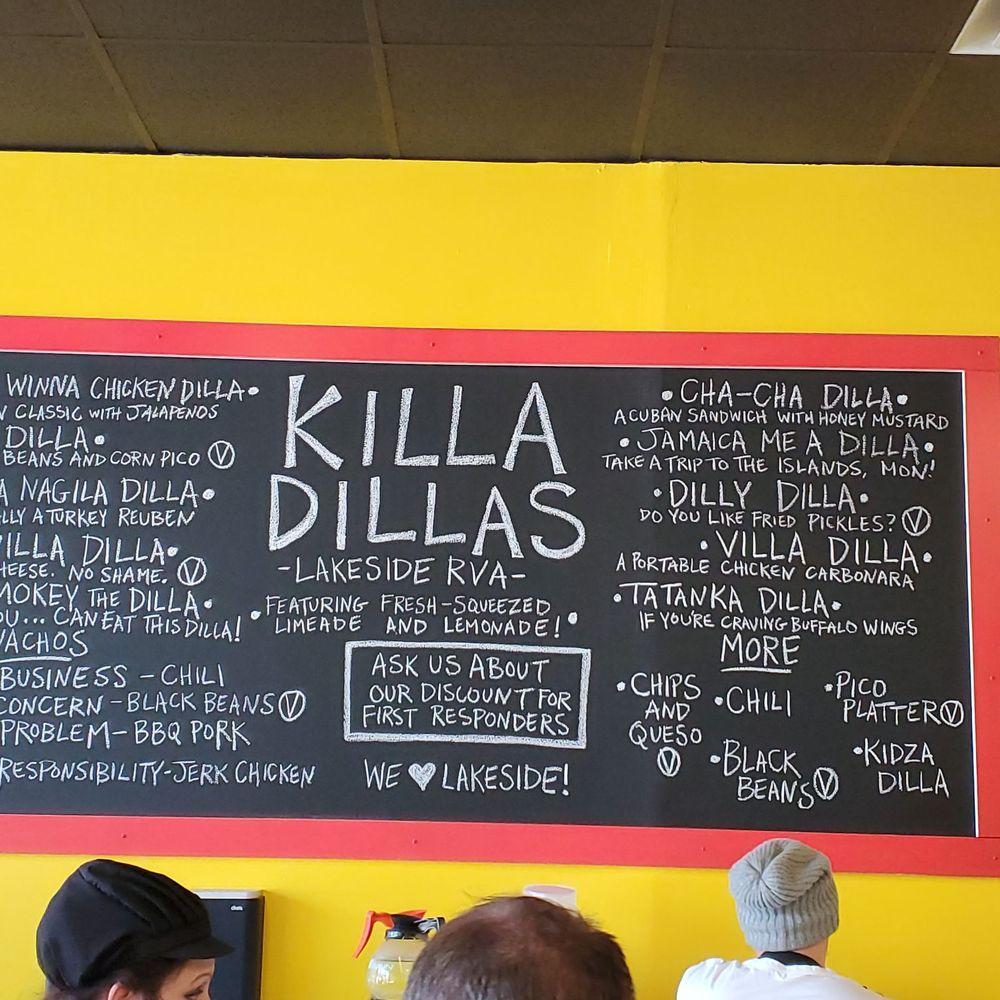 WINNA CHICKEN DILLA•
CLASSIC WITH JALAPENOS
DILLA•
BEANS AND CORN PICO Ⓥ
A NAGILA DILLA•
LLY A TURKEY REUBEN
ILLA DILLA•
HEESE. NO SHAME. Ⓥ
MOKEY THE DILLA•
OU... CAN EAT THIS DILLA!
NACHOS
BUSINESS - CHILI
CONCERN - BLACK BEANS Ⓥ
PROBLEM - BBQ PORK
RESPONSIBILITY - JERK CHICKEN
KILLA
DILLAS
- LAKESIDE RVA -
• FEATURING FRESH-SQUEEZED
LIMEADE AND LEMONADE! •
ASK US ABOUT
OUR DISCOUNT FOR
FIRST RESPONDERS
WE ♥ LAKESIDE!
• CHA-CHA DILLA•
A CUBAN SANDWICH WITH HONEY MUSTARD
• JAMAICA ME A DILLA•
TAKE A TRIP TO THE ISLANDS, MON!
• DILLY DILLA•
DO YOU LIKE FRIED PICKLES? Ⓥ
• VILLA DILLA•
A PORTABLE CHICKEN CARBONARA
• TATANKA DILLA•
IF YOU'RE CRAVING BUFFALO WINGS
MORE
• CHIPS
AND
QUESO
Ⓥ
• CHILI
• BLACK
BEANS Ⓥ
• PICO
PLATTER Ⓥ
• KIDZA
DILLA